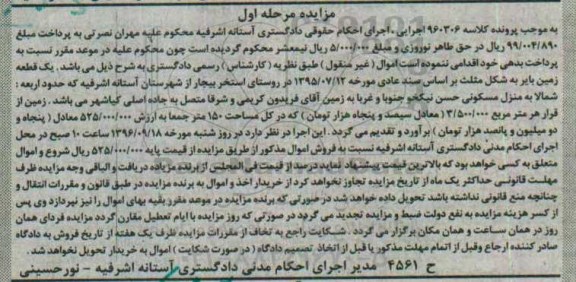 مزایده مرحله اول
به موجب پرونده کلاسه ۹۶۰۳۰۶ اجرایی ، اجرای احکام حقوقی دادگستری آستانه اشرفیه محکوم علیه مهران نصرتی به پرداخت مبلغ
۹۹/۰۰۴/۸۹۰ ریال در حق طاهر نوروزی و مبلغ ۵/۰۰۰/۰۰۰ ریال نیمعشر محکوم گردیده است چون محکوم علیه در موعد مقرر نسبت به
پرداخت بدهی خود اقدامی ننموده است اموال ( غیر منقول ) طبق نظریه ( کارشناس ) رسمی دادگستری به شرح ذیل می باشد . یک قطعه
زمین بایر به شکل مثلث بر اساس سند عادی مورخه ۱۳۹۵/۰۷/۱۲ در روستای استخر بیجار از شهرستان آستانه اشرفیه که حدود اربعه :
شمالا به منزل مسکونی حسن نیکخو جنوبا و غربا به زمین آقای فریدون کریمی و شرقا متصل به جاده اصلی کیاشهر می باشد . زمین از
قرار هر متر مربع ۳/۵۰۰/۰۰۰ ( معادل سیصد و پنجاه هزار تومان ) که در کل مساحت ۱۵۰ متر جمعا به ارزش ۵۲۵/۰۰۰/۰۰۰ معادل ( پنجاه و
دو میلیون و پانصد هزار تومان ) برآورد و تقدیم می گردد . این اجرا در نظر دارد در روز شنبه مورخه ۱۳۹۶/۰۹/۱۸ ساعت ۱۰ صبح در محل
اجرای احکام مدنی دادگستری آستانه اشرفیه نسبت به فروش اموال مذکور از طریق مزایده از قیمت پایه ۵۲۵/۰۰۰/۰۰۰ ریال شروع و اموال
متعلق به کسی خواهد بود که بالاترین قیمت پیشنهاد نماید در صد از قیمت فی المجلس از برنده مزایده دریافت و الباقی وجه مزایده ظرف
مهلت قانونی حداکثر یک ماه از تاریخ مزایده تجاوز نخواهد کرد از خریدار اخذ و اموال به برنده مزایده در طبق قانون و مقررات انتقال و
چنانچه منع قانونی نداشته باشد تحویل داده خواهد شد در صورتی که برنده مزایده در موعد مقرر بقیه بهای اموال را نیز نپردازد وی پس
از کسر هزینه مزایده به نفع دولت ضبط و مزایده تجدید می گردد در صورتی که روز مزایده با ایام تعطیل مقارن گردد مزایده فردای همان
روز در همان ساعت و همان مکان برگزار می گردد . شکایت راجع به تخلف از مقررات مزایده ظرف یک هفته از تاریخ فروش به دادگاه
صادر کننده ارجاع وقبل از اتمام مهلت مذکور یا قبل از اتخاذ تصمیم دادگاه ( در صورت شکایت ) اموال به خریدار تحویل نخواهد شد .
ح ۴۵۶۱ مدیر اجرای احکام مدنی دادگستری آستانه اشرفیه - نورحسینی